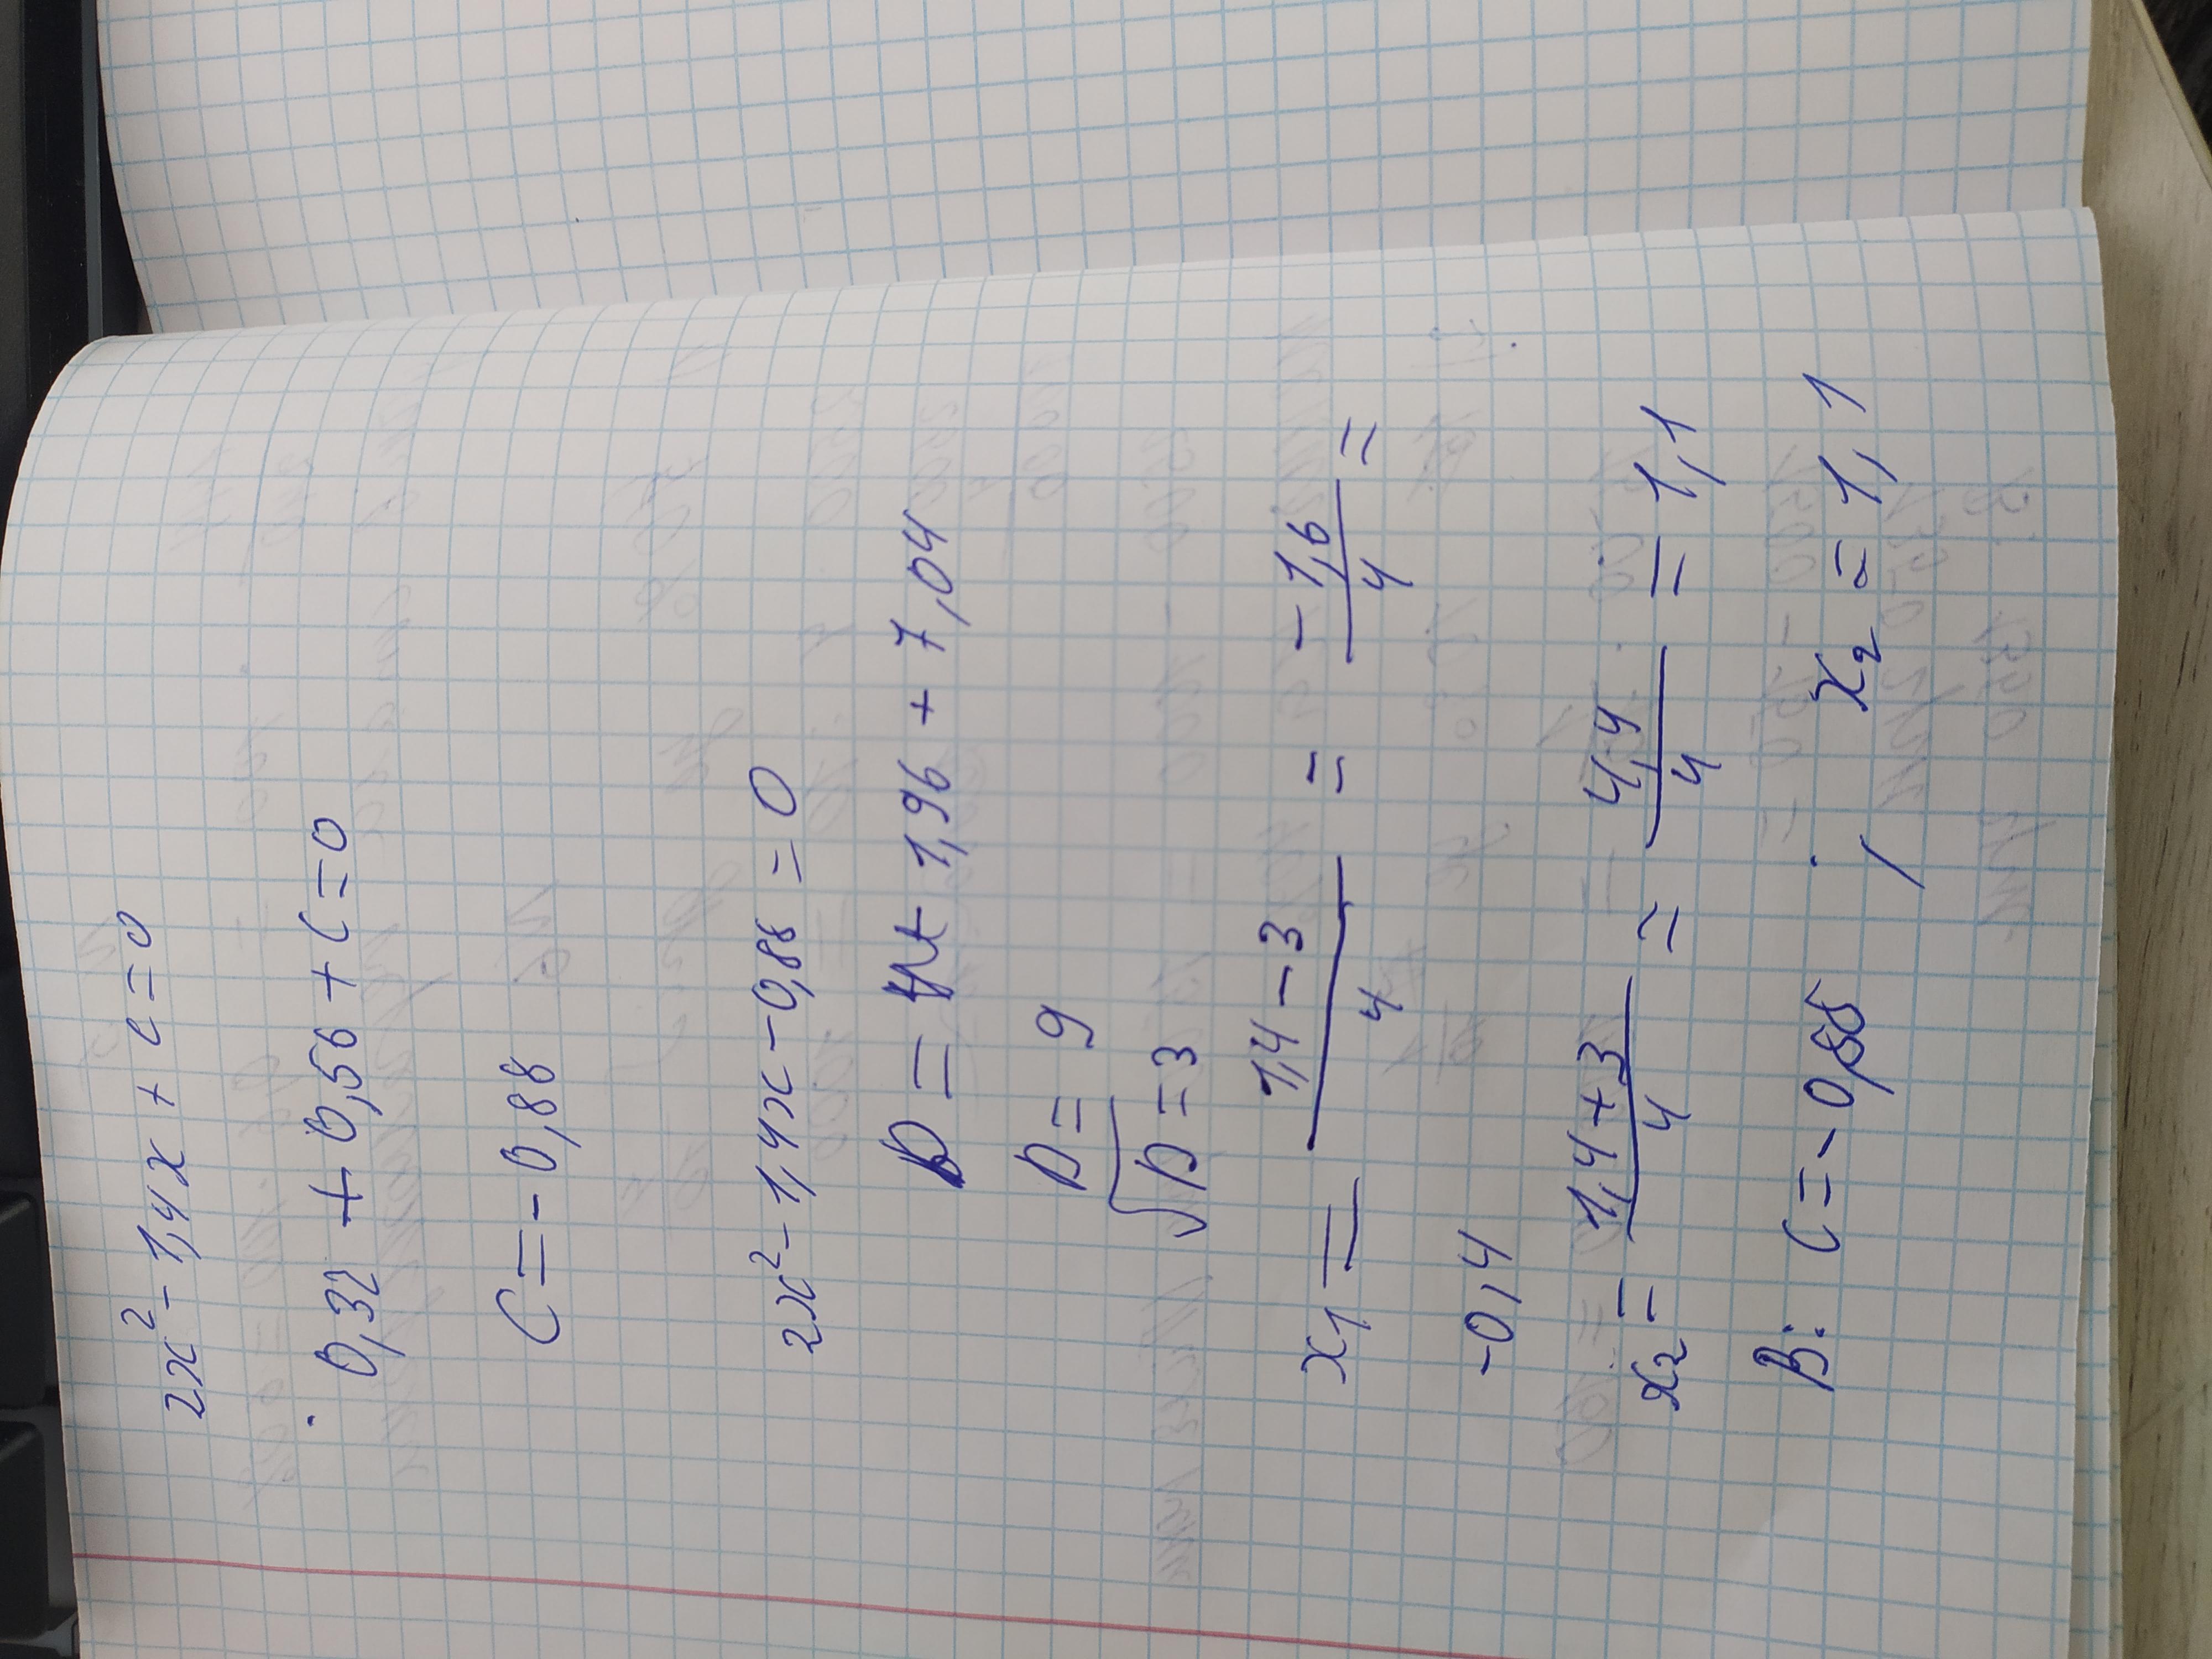 2x² - 1,4x + c = 0
0,32 + 0,56 + c = 0
C = - 0,88
2x² - 1,4x - 0,88 = 0
D = 1,96 + 7,04
D = 9
√D = 3
x₁ = (1,4 - 3)/4 = (-1,6)/4 =
-0,4
x₂ = (1,4 + 3)/4 = 4,4/4 = 1,1
В: C = - 0,88 ; x₂ = 1,1